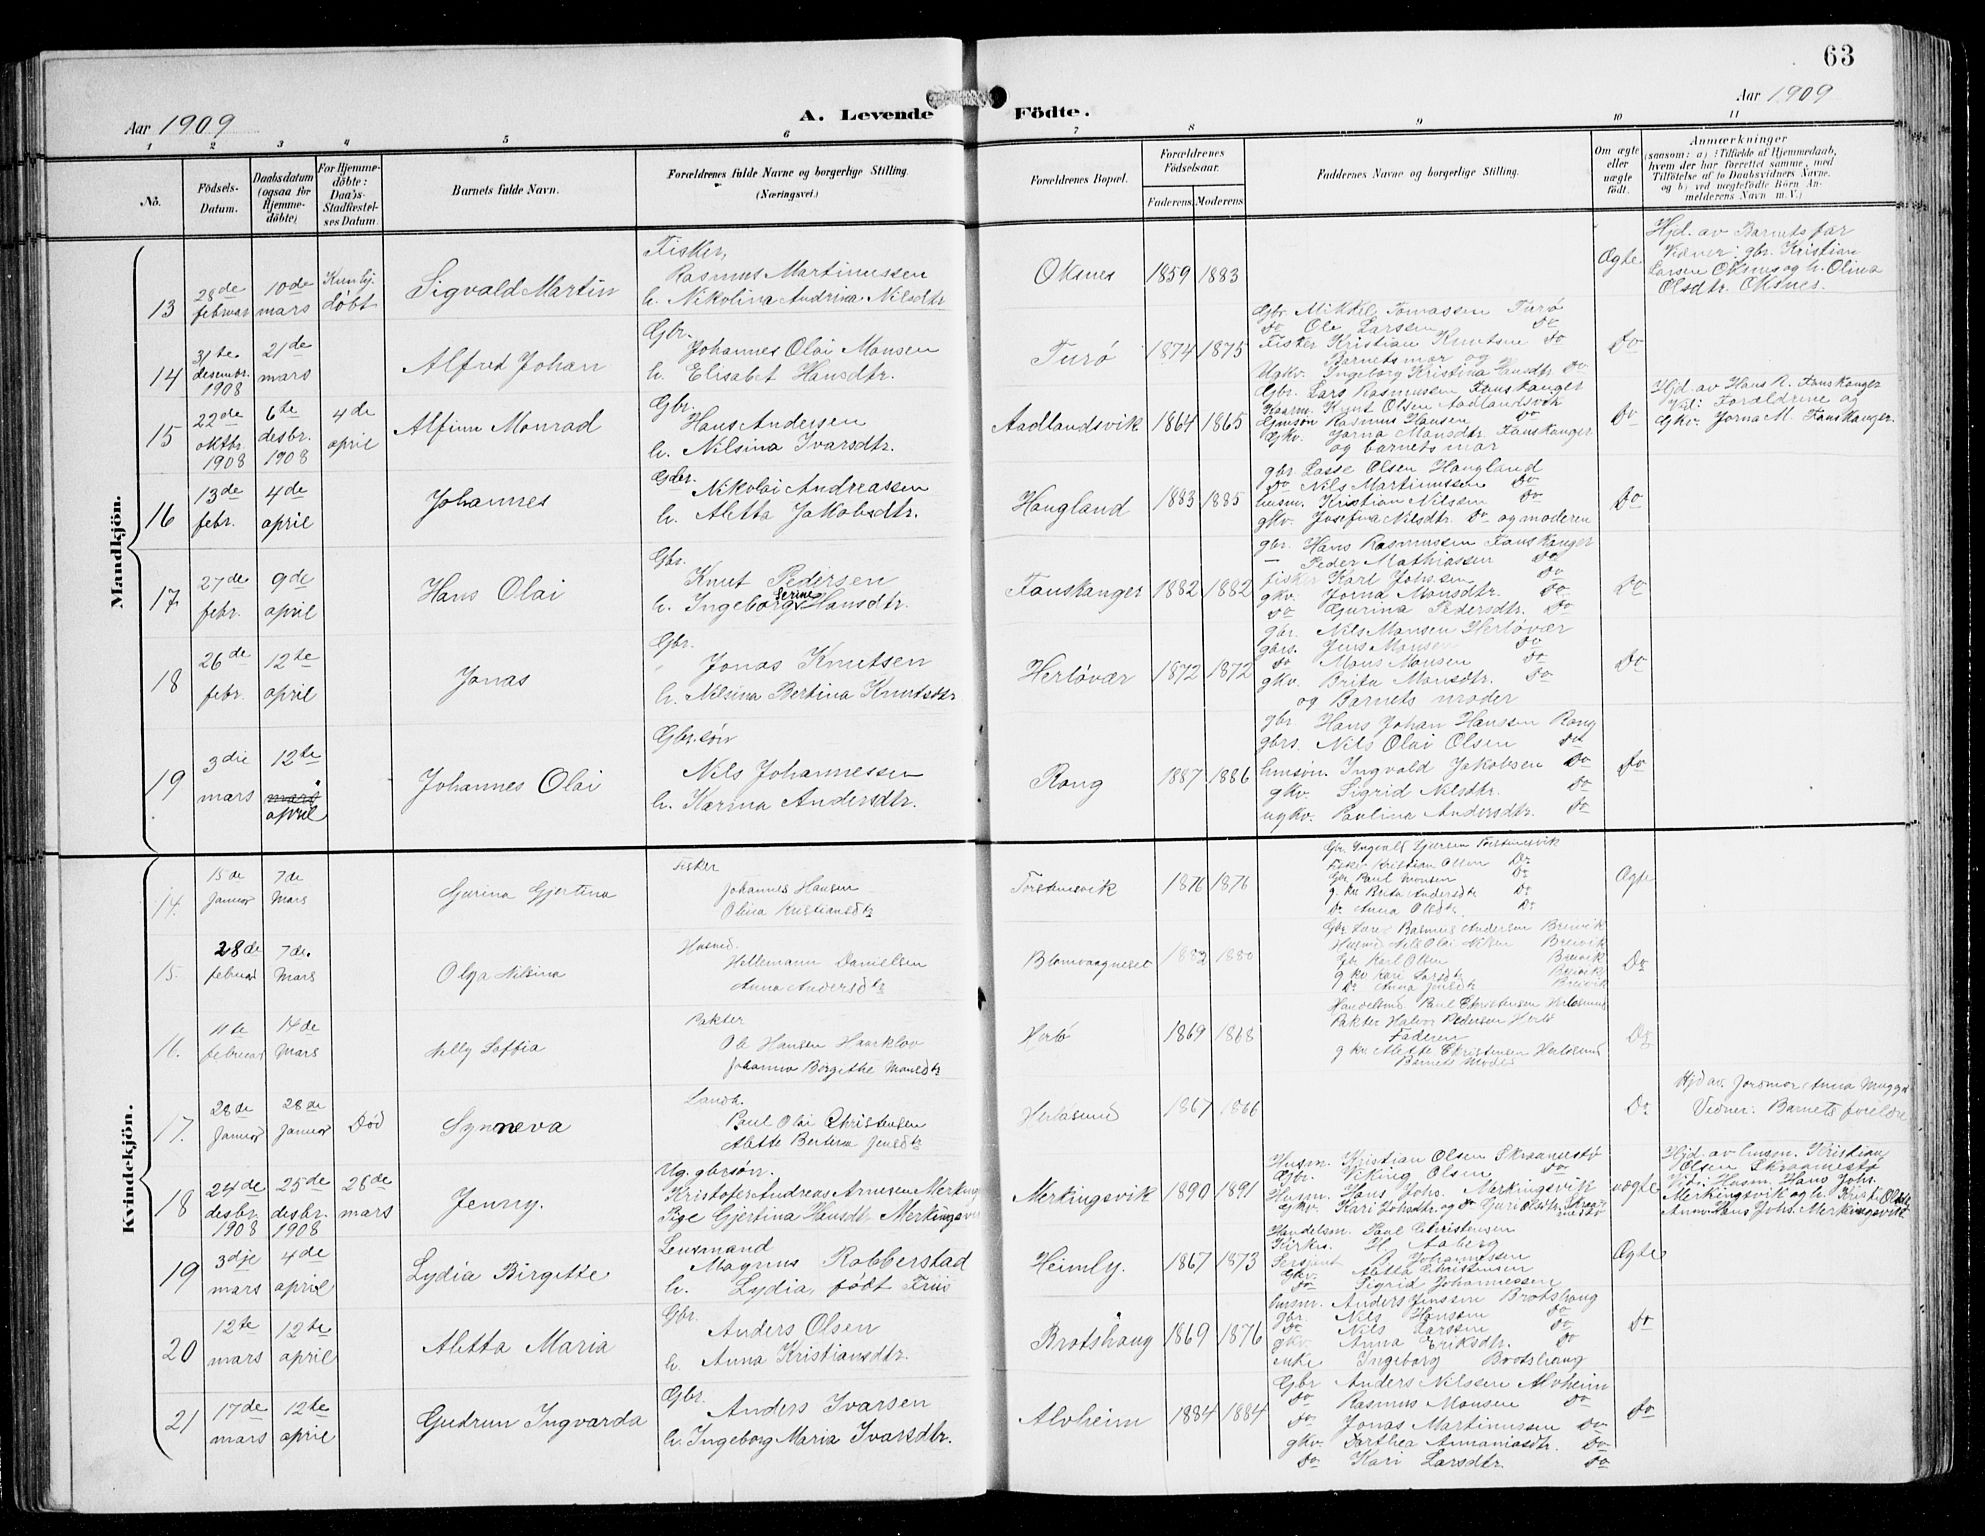 63
Aar 1909
A. Levende Födte.
Aar 1909
1 2 3 4 5 6 7 8 9 10 11
No.
Födsels-Datum.
Daabsdatum (ogsaa for Hjemmedöbte)
For Hjemmedöbte: Daabs Stadfæstelses Datum.
Barnets fulde Navn.
Forældrenes fulde Navne og borgerlige Stilling. (Næringsvei.)
Forældrenes Bopæl.
Forældrenes Födselsaar.
Faderens. Moderens.
Faddernes Navne og borgerlige Stilling.
Om ægte eller uægte födt.
Anmærkninger
(saasom: a) i Tilfælde af Hjemmedaab, hvem der har forrettet samme, med Tilföielse af to Daabsvidners Navne, og b) ved uægtefödte Börn Anmelderens Navn m. V.)
Mandkjön.
13
28de februar
10de mars
Kun hj. døbt
Sigvald Martin
Fisker,
Rasmus Martinussen
h. Nikolina Andrina Nilsdtr
Oksnes
1859 1883
Ægte
Hjd. av Barnets far
Vidner: gbr. Kristian
Larsen Oksnes og h. Olina
Olsdtr. Oksnes.
14
31te desembr. 1908
21de mars
Alfred Johan
Gbr.
Johannes Olai Monsen
h. Elisabet Hansdtr.
Turø
1874 1875
Gbr. Mikkel Tomassen Turø
Do Ole Larssen Do
Fisker Kristian Knutsen Do
Barnets mor og
Ugkv. Ingeborg Kristina Hansdtr Do
Do
15
22de oktbr. 1908
6te desbr. 1908
4de april
Alfinn Monrad
Gbr.
Hans Andersen
h. Nilsina Ivarsdtr.
Aadlandsvik
1864 1865
Gbr. Lars Rasmussen Fauskanger
Kaarm. Knut Olsen Aadlandsvik
Gmsøn Rasmus Hansen Do
Gkv. Jorna Monsdtr. Fauskanger
og barnets mor
Do
Hjd. av Hans R. Fauskanger
Vid: Forældrene og
Gkv. Jorna M. Fauskanger.
16
13de febr.
4de april
Johannes
Gbr.
Nikolai Andreassen
h. Aletta Jakobsdtr.
Haugland
1883 1885
gbr Lasse Olsen Haugland
Do Nils Martinussen Do
husm. Kristian Nilsen Do
gkv. Josefina Nilsdtr. Do og moderen
Do
17
27de febr.
9de april
Hans Olai
Gbr.
Knut Pedersen
Serine
h. Ingeborg Hansdtr.
Fauskanger
1882 1882
gbr. Hans Rasmussen Fauskanger
— Peder Mathiassen Do
fisker Karl Johssen Do
gkv. Jorna Monsdtr. Do
Do Gurina Pedersdtr. Do
Do
18
26de febr.
12te april
Jonas
Gbr.
Jonas Knutsen
h. Nilsina Bertina Knutsdtr
Herløvær
1872 1872
gbr. Nils Monsen Herløvær
gbrs. Jens Monsen Do
Do Mons Monsen Do
gkv. Brita Monsdtr. Do
og Barnets moder
Do
19
3die mars
12te mars april
Johannes Olai
Gbr.søn
Nils Johannessen
h. Karina Andersdtr.
Rong
1887 1886
gbr Hans Johan Hanssen Rong
gbrs. Nils Olai Olsen Do
hmsøn. Ingvald Jakobsen Do
gkv. Sigrid Nilsdtr. Do
ugkv. Paulina Andersdtr. Do
Do
Kvindekjön.
14.
15de Januar
7de Mars
Gurina Gjertina
Fisker
Johannes Hansen
Olina Kristiansdtr
Torsteinsvik
1876 1876
Gbr. Ingvald Torsteinsvik
Fisker Kristian Olsen Do
Gbr Paul Monsen Do
g. kv. Brita Andersdtr Do
Do Anna Olsdtr. Do
Ægte
15.
28de februar
7de. Mars
Olga Nilsina
Husmd.
Hellemann Danielsen
Anna Andersdtr
Blomvaagneset
1882 1880
Gbr Lars Rasmus Andersen Breivik
Husmd Nils Olai Nilsen Breivik
Gbr Karl Olsen Breivik
g kv Kari Larsdtr Breivik
Do Anna Jensdtr Breivik
Do
16.
11te februar
14de Mars
Nelly Soffia
Pakter
Ole Hansen Haarklov
Johanna Birgithe Monsdtr
Herlø
1869 1868
Handelsmd Paul Christensen Herløsund
Pakter Halvor Pedersen Herlø
Faderen
g kv. Alette Christensen Herløsund
Barnets Moder
Do
17.
28de Januar
28de Januar
Død
Synneva
Landh.
Paul Olai Christensen
Alette Bertina Jensdtr
Herløsund
1867 1866
Do
Hjd av. Jordmor Anna Mugga
Vidner: Barnets forældre
18
24de desbr. 1908
25de desbr. 1908
26de mars
Jenny.
Ug. gbrsøn.
Kristofer Andreas Arnesen Merkings
Pige Gjertina Hansdtr Merkingsvik
Merkingsvik
1890 1891
Husm. Kristian Olsen Skraamestø
Gbr. Viking Olsen Do
Husm. Hans Johs. Merkingsvik
Gkv. Kari Johsdtr. og Do Guri Olsdtr. Skraamestø
uægte
Hjd. av husm. Kristian
Olsen Skraamestø
Vid: Husm. Hans Johs.
Merkingsvik og h. Kristi Olsdtr
Anm: Hans Johs. Merkingsvik
19
3dje mars
4de april
Lydia Birgitte
Lensmand
Magnus Robberstad
h. Lydia, født Friis
Heimly.
1867 1873
Handelsm. Paul Christensen
Kirkes. H. Aaberg
Sersjant A. Johannessen
Gkv. Aletta Christensen
Do Sigrid Johannessen
Ægte
20
12te mars
12te april
Aletta Maria
Gbr.
Anders Olsen
h. Anna Kristiansdtr.
Brotshaug
1869 1876
husm. Anders Jenssen Brotshaug
gbr. Nils Hanssen Do
Do Nils Larssen Do
gkv. Anna Eriksdtr. Do
enke Ingeborg Brotshaug
Do
21
17de mars
12te april
Gudrun Ingvarda
Gbr.
Anders Ivarsen
h. Ingeborg Maria Ivarsdtr.
Alvheim
1884 1884
Gbr Anders Nilssen Alvheim
Do Rasmus Monsen Do
Do Jonas Martinussen Do
gkv. Dorthea Annaniasdtr. Do
Do Kari Larsdtr. Do
Do